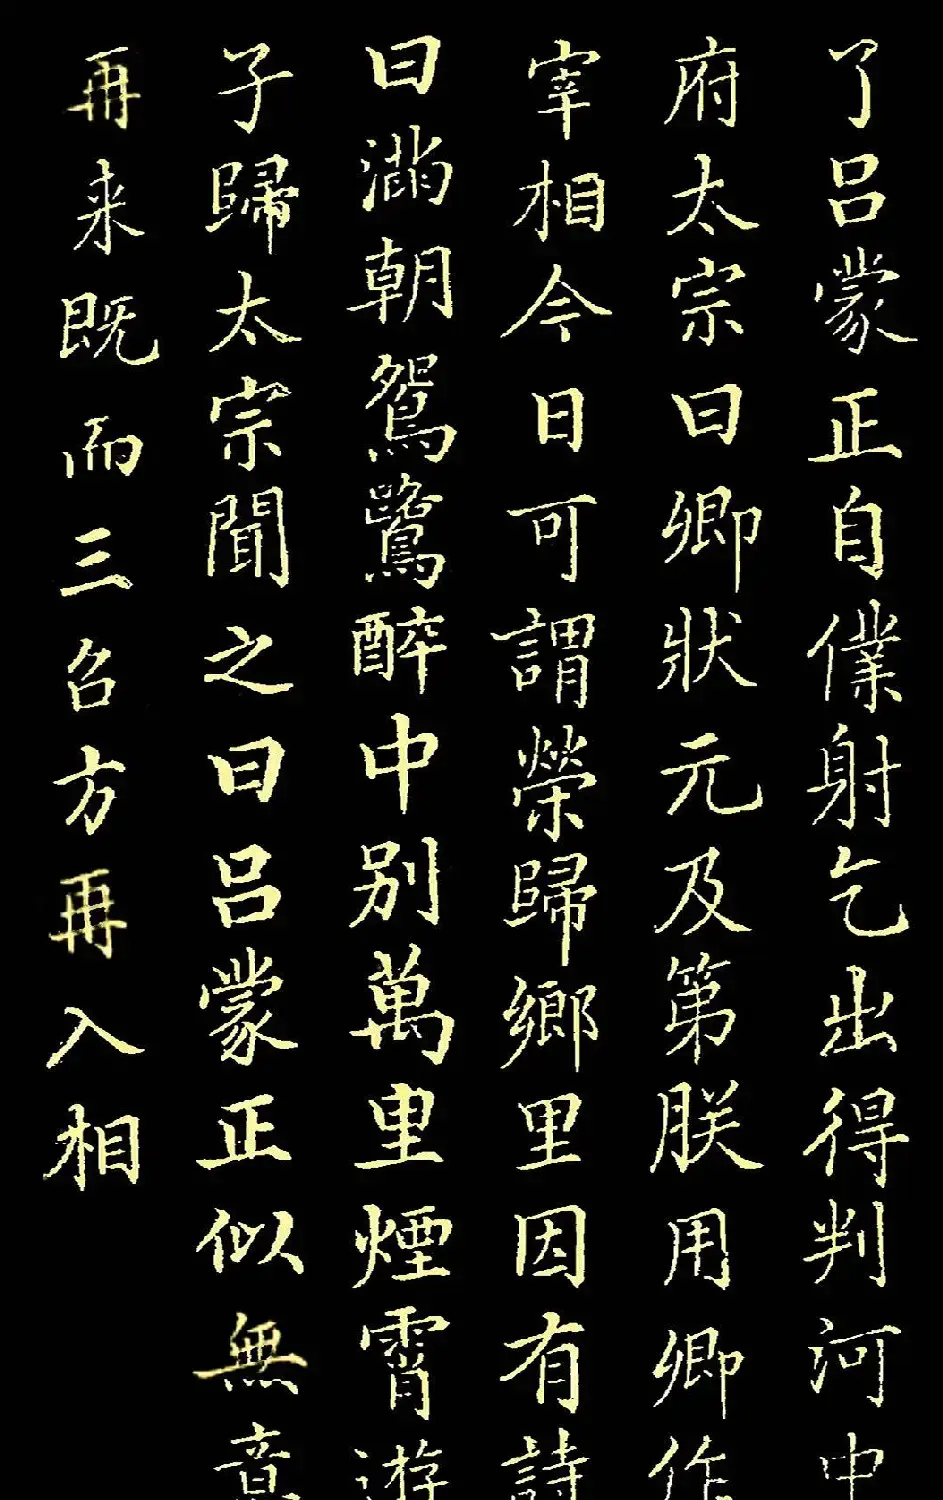 了吕蒙正自僕射乞出得判河中
府太宗曰卿狀元及第朕用卿作
宰相今日可謂榮歸鄉里因有詩
曰滿朝鴛鷺醉中别萬里煙霄遊
子歸太宗聞之曰吕蒙正似無意
再来既而三召方再入相